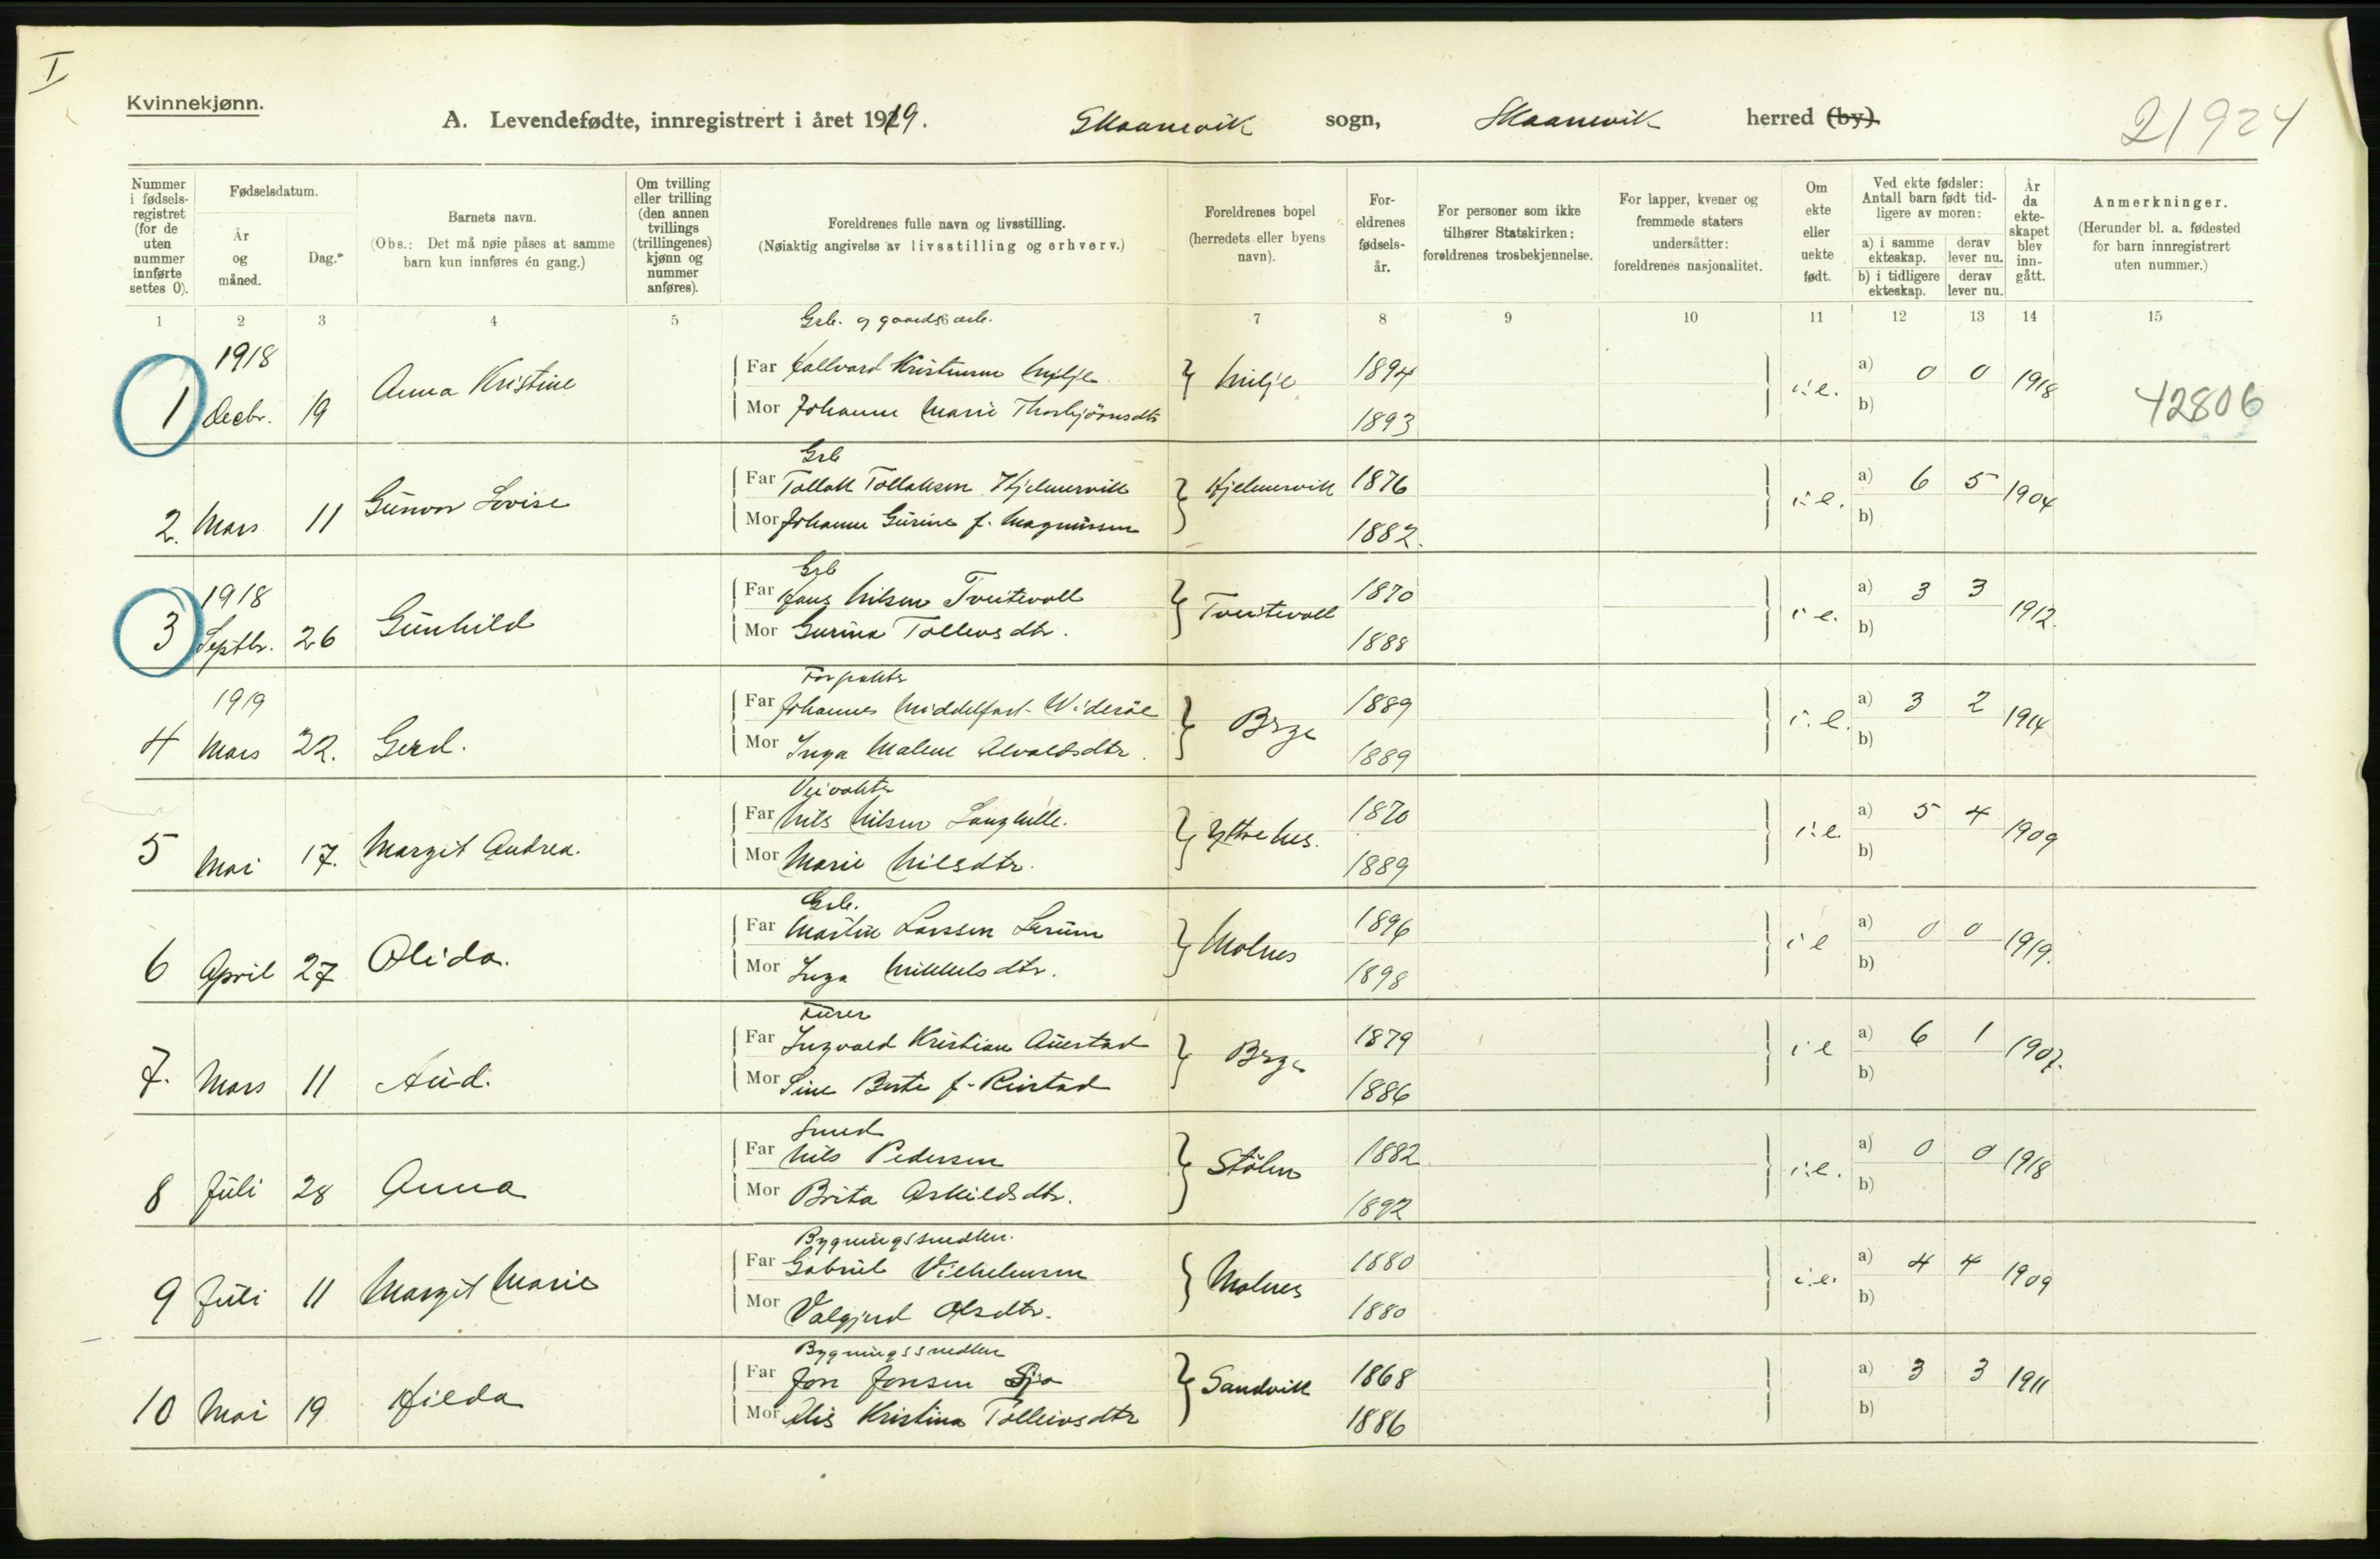 I
Kvinnekjønn.
A. Levendefødte, innregistrert i året 1919.
Skaanevik sogn, Skaanevik herred (by)
21924
Nummer i fødselsregistret (for de uten nummer innførte settes 0).
Fødselsdatum.
År og måned.
Dag.
Barnets navn.
(Obs.: Det må nøie påses at samme barn kun innføres én gang.)
Om tvilling eller trilling (den annen tvillings (trillingenes) kjønn og nummer anføres).
Foreldrenes fulle navn og livsstilling.
(Nøiaktig angivelse av livsstilling og erhverv.)
Foreldrenes bopel (herredets eller byens navn).
Foreldrenes fødselsår.
For personer som ikke tilhører Statskirken: foreldrenes trosbekjennelse.
For lapper, kvener og fremmede staters undersåtter: foreldrenes nasjonalitet.
Om ekte eller uekte født.
Ved ekte fødsler: Antall barn født tidligere av moren:
a) i samme ekteskap. derav lever nu.
b) i tidligere ekteskap. derav lever nu.
År da ekteskapet blev inngått.
Anmerkninger.
(Herunder bl. a. fødested for barn innregistrert uten nummer.)
1 2 3 4 5 7 8 9 10 11 12 13 14 15
Grb. og gaardsarb.
1918
1 Decbr. 19 Anna Kristine
Far Hallvard Kristensen Milje Milje 1894 i: e. a) 0 0 1918
Mor Johanne Marie Thorbjörnsdtr 1893 b)
42806
Grb
2. Mars 11 Gunvor Lovise
Far Tollak Tollaksen Hjelmervik Hjelmervik 1876 i: e. a) 6 5 1904
Mor Johanne Gurine f. Magnussen 1882. b)
Grb
1918
3 Septbr. 26 Gunhild
Far Hans Nilsen Tveitevoll Tveitevoll 1870 i e. a) 3 3 1912.
Mor Gurina Tolleivsdtr. 1888 b)
Forpakter
1919
4 Mars 22. Gerd.
Far Johannes Middelfart-Wideröe 1889 i. e. a) 3 2 1914
Mor Inga Malene Alvaldsdtr. 1889 b)
Veivokter
5 Mai 17. Margit Andrea.
Far Nils Nilsen Yttrehus. 1870 i: e. a) 5 4 1909
Mor Marie Nilsdtr. 1889 b)
Grb.
6 April 27 Olida.
Far Martin Larssen Lerum Molnes 1896 i e a) 0 0 1919.
Mor Inga Mikkelsdtr. 1898 b)
7. Mars 11 Aud.
Far Ingvald Kristian Auestad 1879 i e a) 6 1 1907.
Mor Sine Berte f. Reistad 1886 b)
Smed
8 Juli 28 Anna
Far Nils Pedersen Stölen 1882 i: e. a) 0 0 1918
Mor Brita Askildsdtr. 1892 b)
Bygningssnedker.
9 Juli 11 Margit Marie
Far Gabriel Vilhelmsen Molnes 1880 i: e. a) 4 4 1909
Mor Valgjerd Olsdtr. 1880 b)
Bygningssnedker
10 Mai 19 Hilda
Far Jon Jonsen Sjo Sandvik 1868 a) 3 3 1911
Mor Alis Kristina Tolleivsdtr 1886 b)